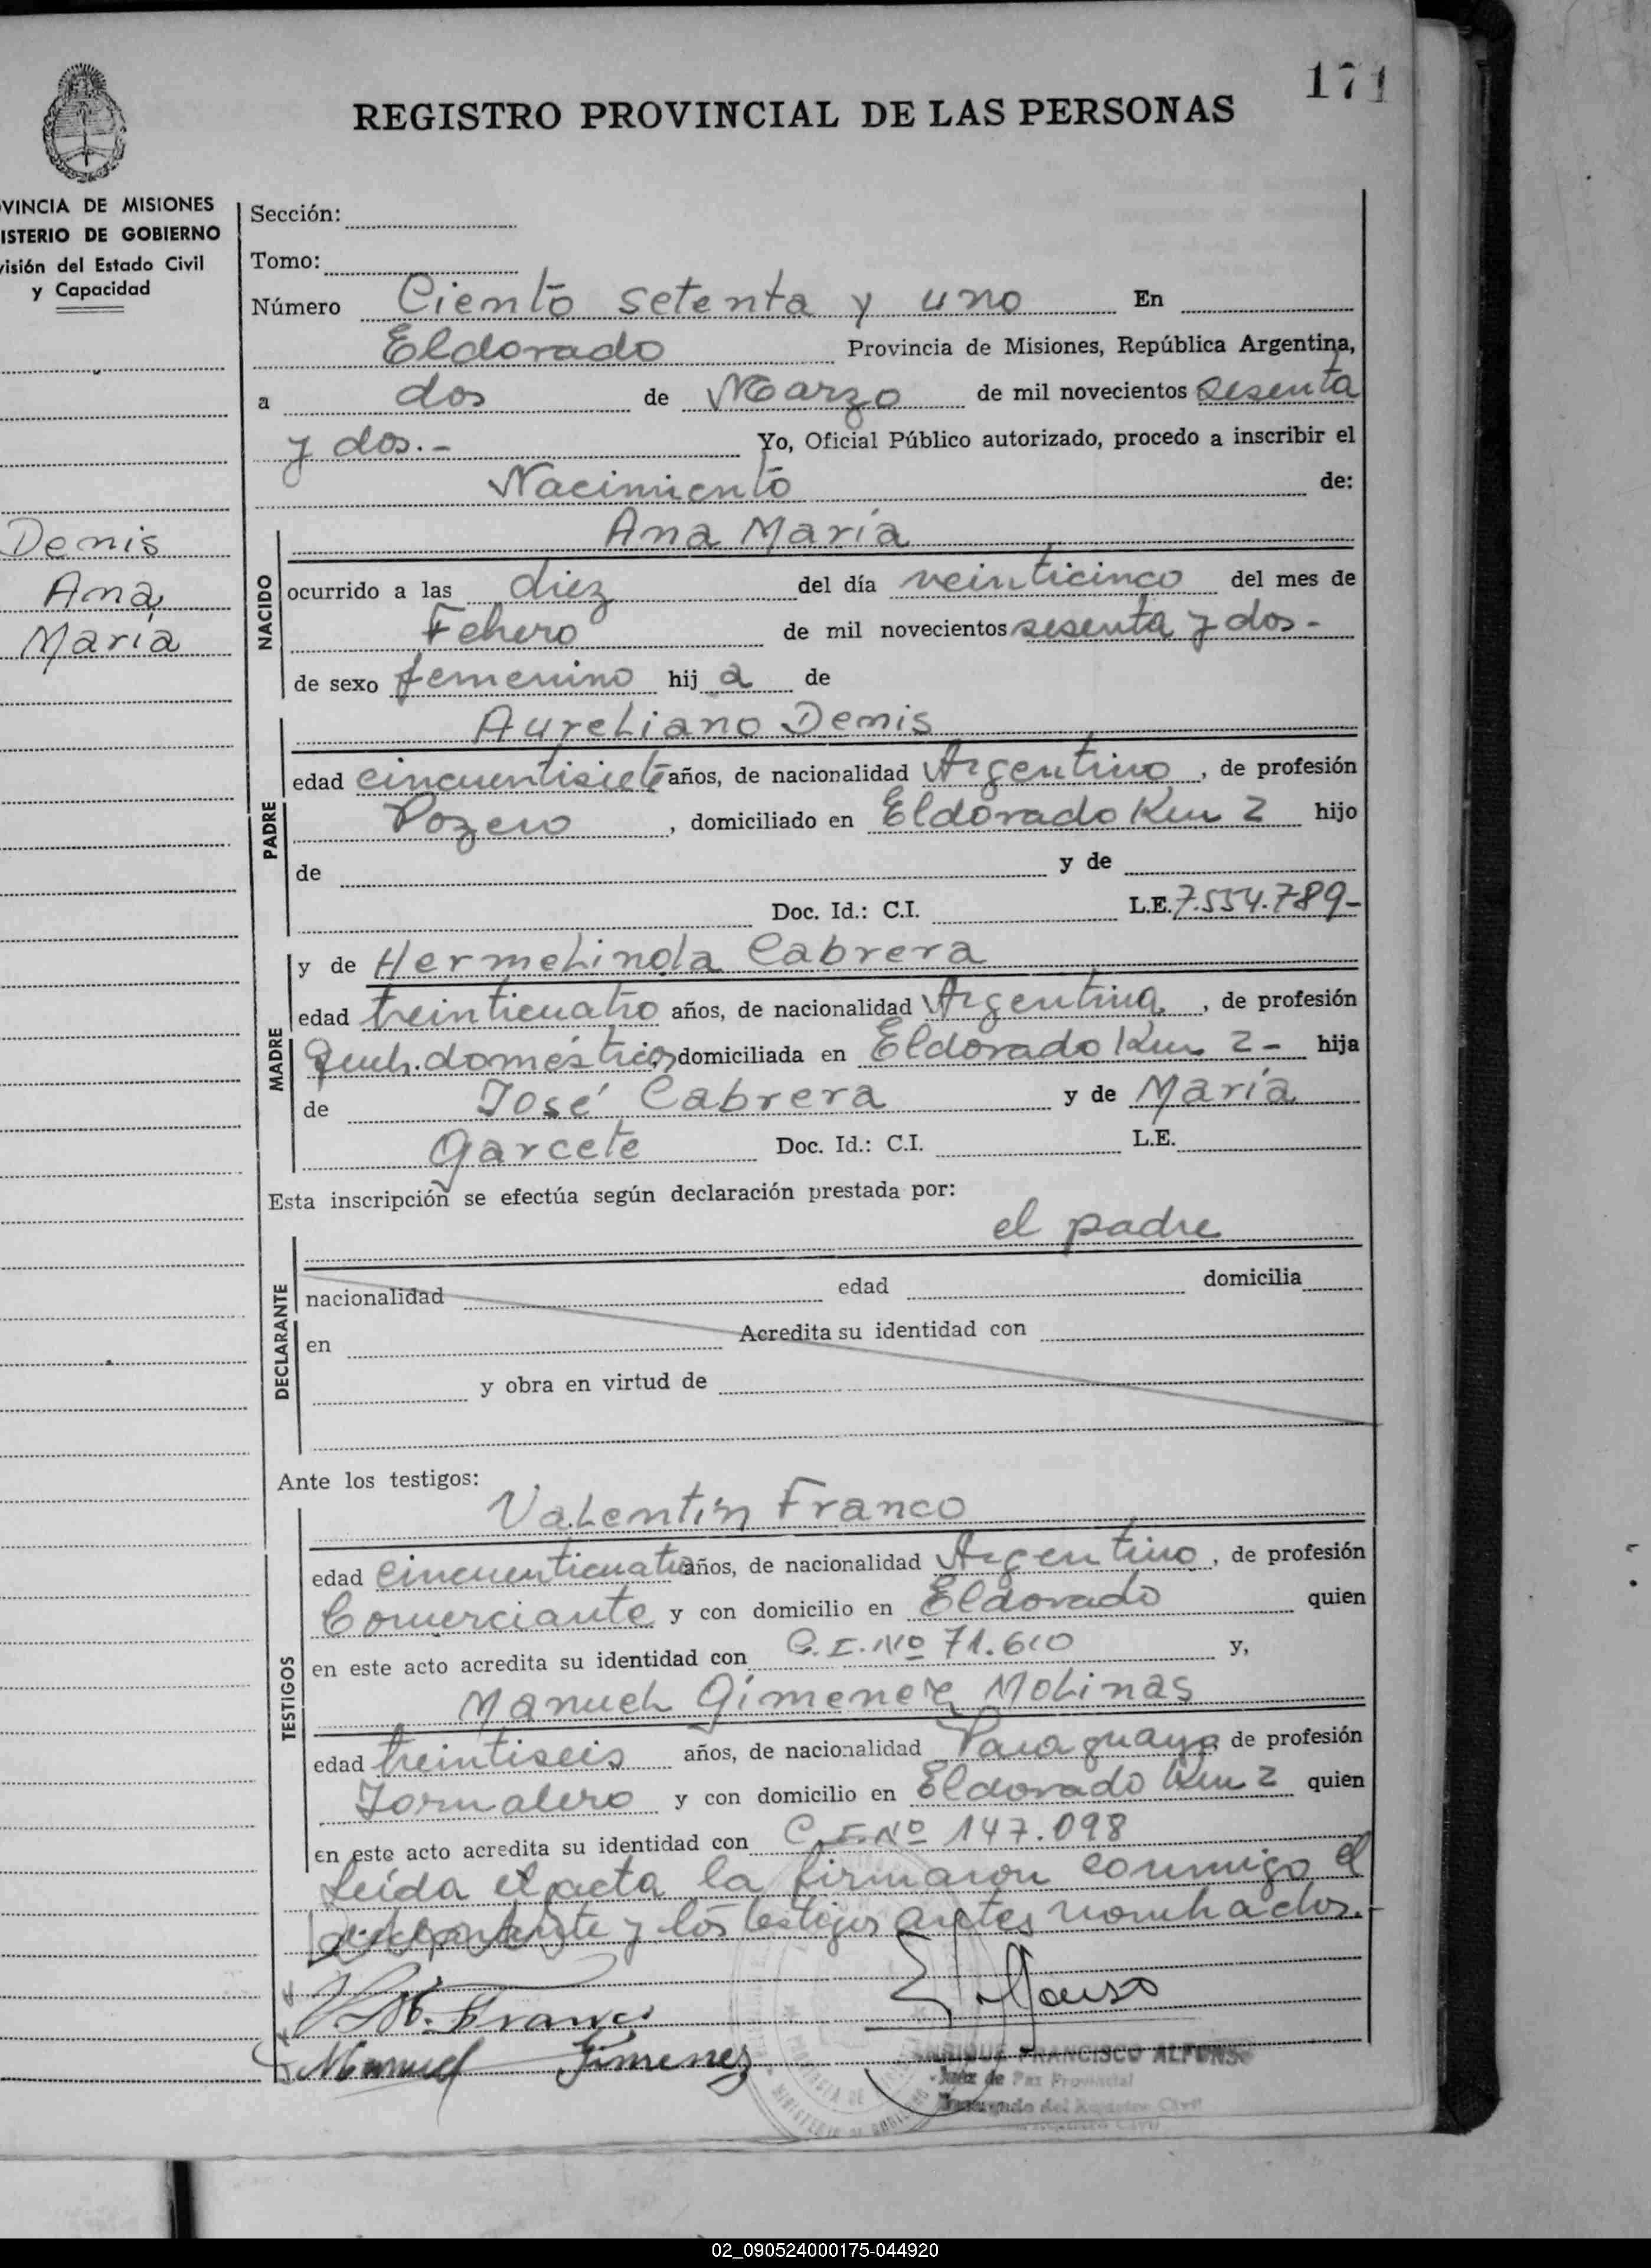 171
REGISTRO PROVINCIAL DE LAS PERSONAS
VINCIA DE MISIONES
ISTERIO DE GOBIERNO
visión del Estado Civil
y Capacidad
Denis
Ana
María
Sección:
Tomo:
Número Ciento setenta y uno En
Eldorado Provincia de Misiones, República Argentina,
a dos de Marzo de mil novecientos sesenta
y dos.- Yo, Oficial Público autorizado, procedo a inscribir el
Nacimiento de:
NACIDO
Ana María
ocurrido a las diez del día veinticinco del mes de
Febrero de mil novecientos sesenta y dos-
de sexo femenino hij a de
PADRE
Aureliano Denis
edad cincuentisiete años, de nacionalidad Argentino, de profesión
Pozero, domiciliado en Eldorado Km 2 hijo
de y de
Doc. Id.: C.I. L.E. 7.554.789-
MADRE
y de Hermelinda Cabrera
edad treinticuatro años, de nacionalidad Argentina, de profesión
Queh. domésticos, domiciliada en Eldorado Km 2- hija
de José Cabrera y de María
Garcete Doc. Id.: C.I. L.E.
Esta inscripción se efectúa según declaración prestada por:
DECLARANTE
el padre
nacionalidad edad domicilia
en Acredita su identidad con
y obra en virtud de
Ante los testigos:
TESTIGOS
Valentín Franco
edad cincuenticuatro años, de nacionalidad Argentino, de profesión
Comerciante y con domicilio en Eldorado quien
en este acto acredita su identidad con C.I. Nº 71.610 y,
Manuel Gimenez Molinas
edad treintiseis años, de nacionalidad Paraguayo, de profesión
Jornalero y con domicilio en Eldorado Km 2 quien
en este acto acredita su identidad con C.I. Nº 147.098
Leída el acta la firmaron conmigo el
y los testigos antes nombrados.-
Franco
Manuel Gimenez
Alfonso
ENRIQUE FRANCISCO ALFONSO
Juez de Paz Provincial
Encargado del Registro Civil
02_090524000175-044920